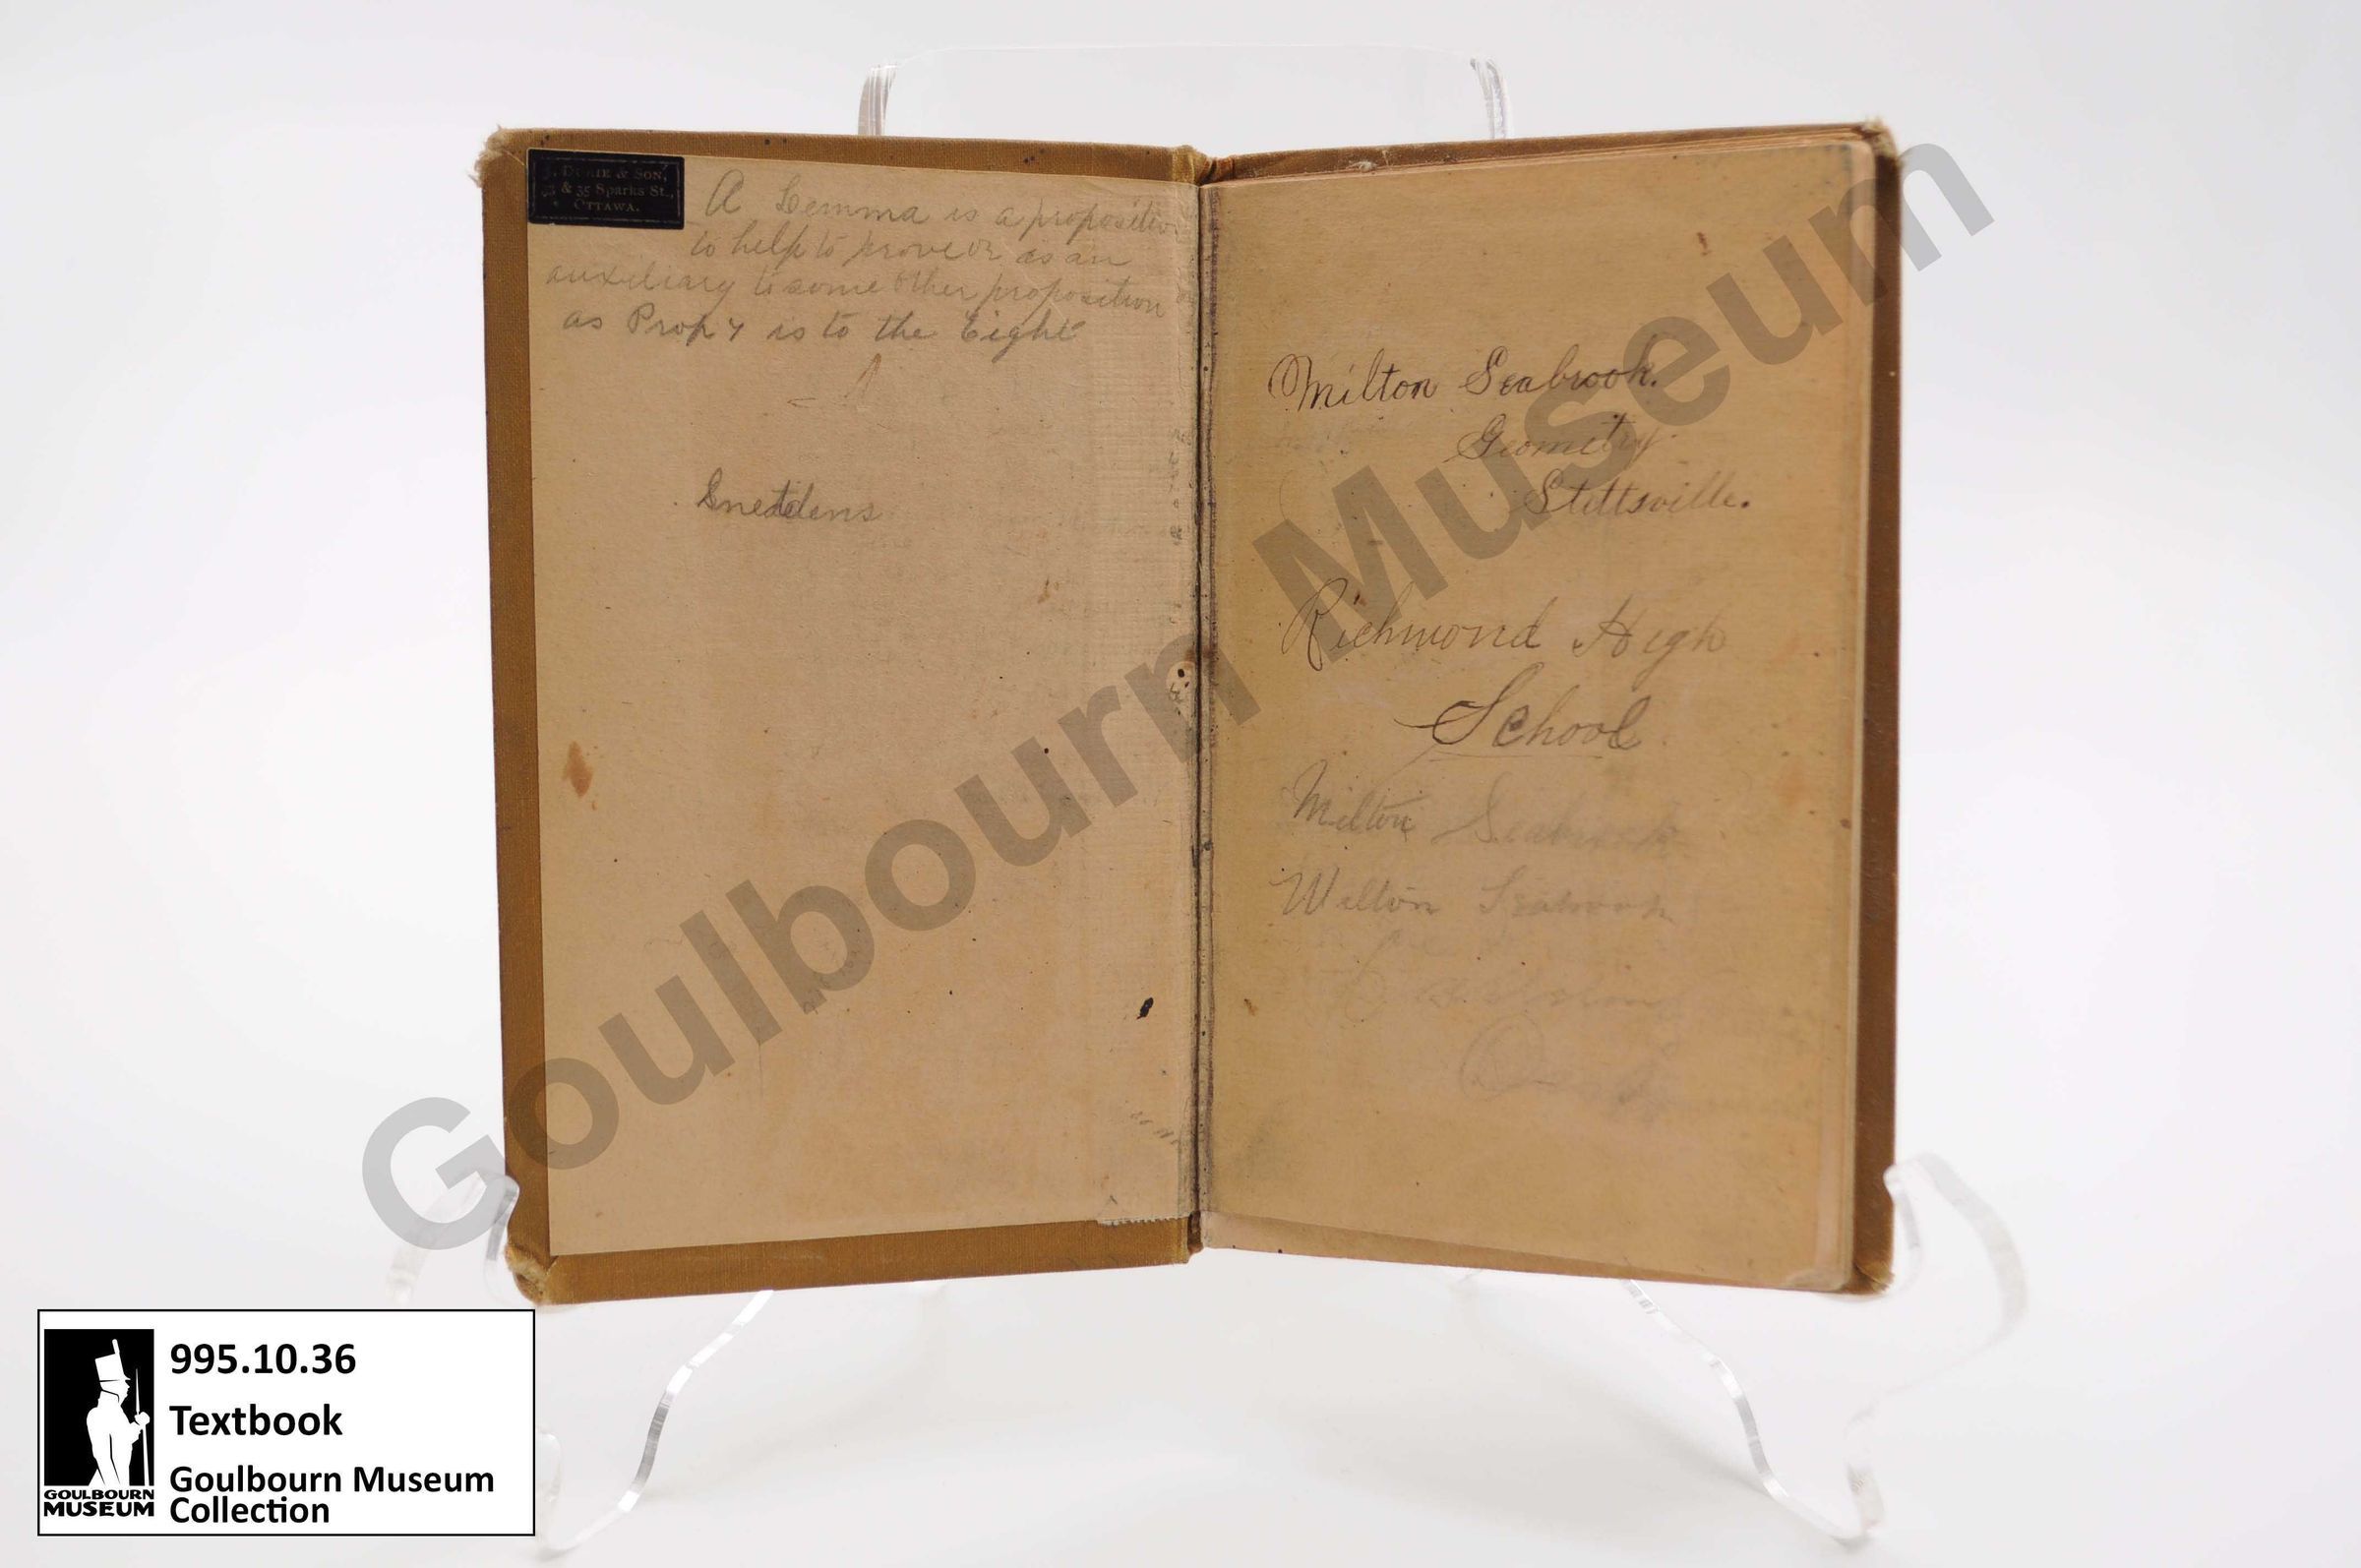 J. Durie & Son,
33 & 35 Sparks St.,
Ottawa.
A Lemma is a proposition
to help to prove or as an
auxiliary to some other proposition
as Prop 7 is to the Eight
Sneddens
Milton Seabrook.
Geometry
Stittsville.
Richmond High
School
Milton Seabrook
Milton Seabrook
Goulbourn Museum
995.10.36
Textbook
Goulbourn Museum
Collection
GOULBOURN
MUSEUM